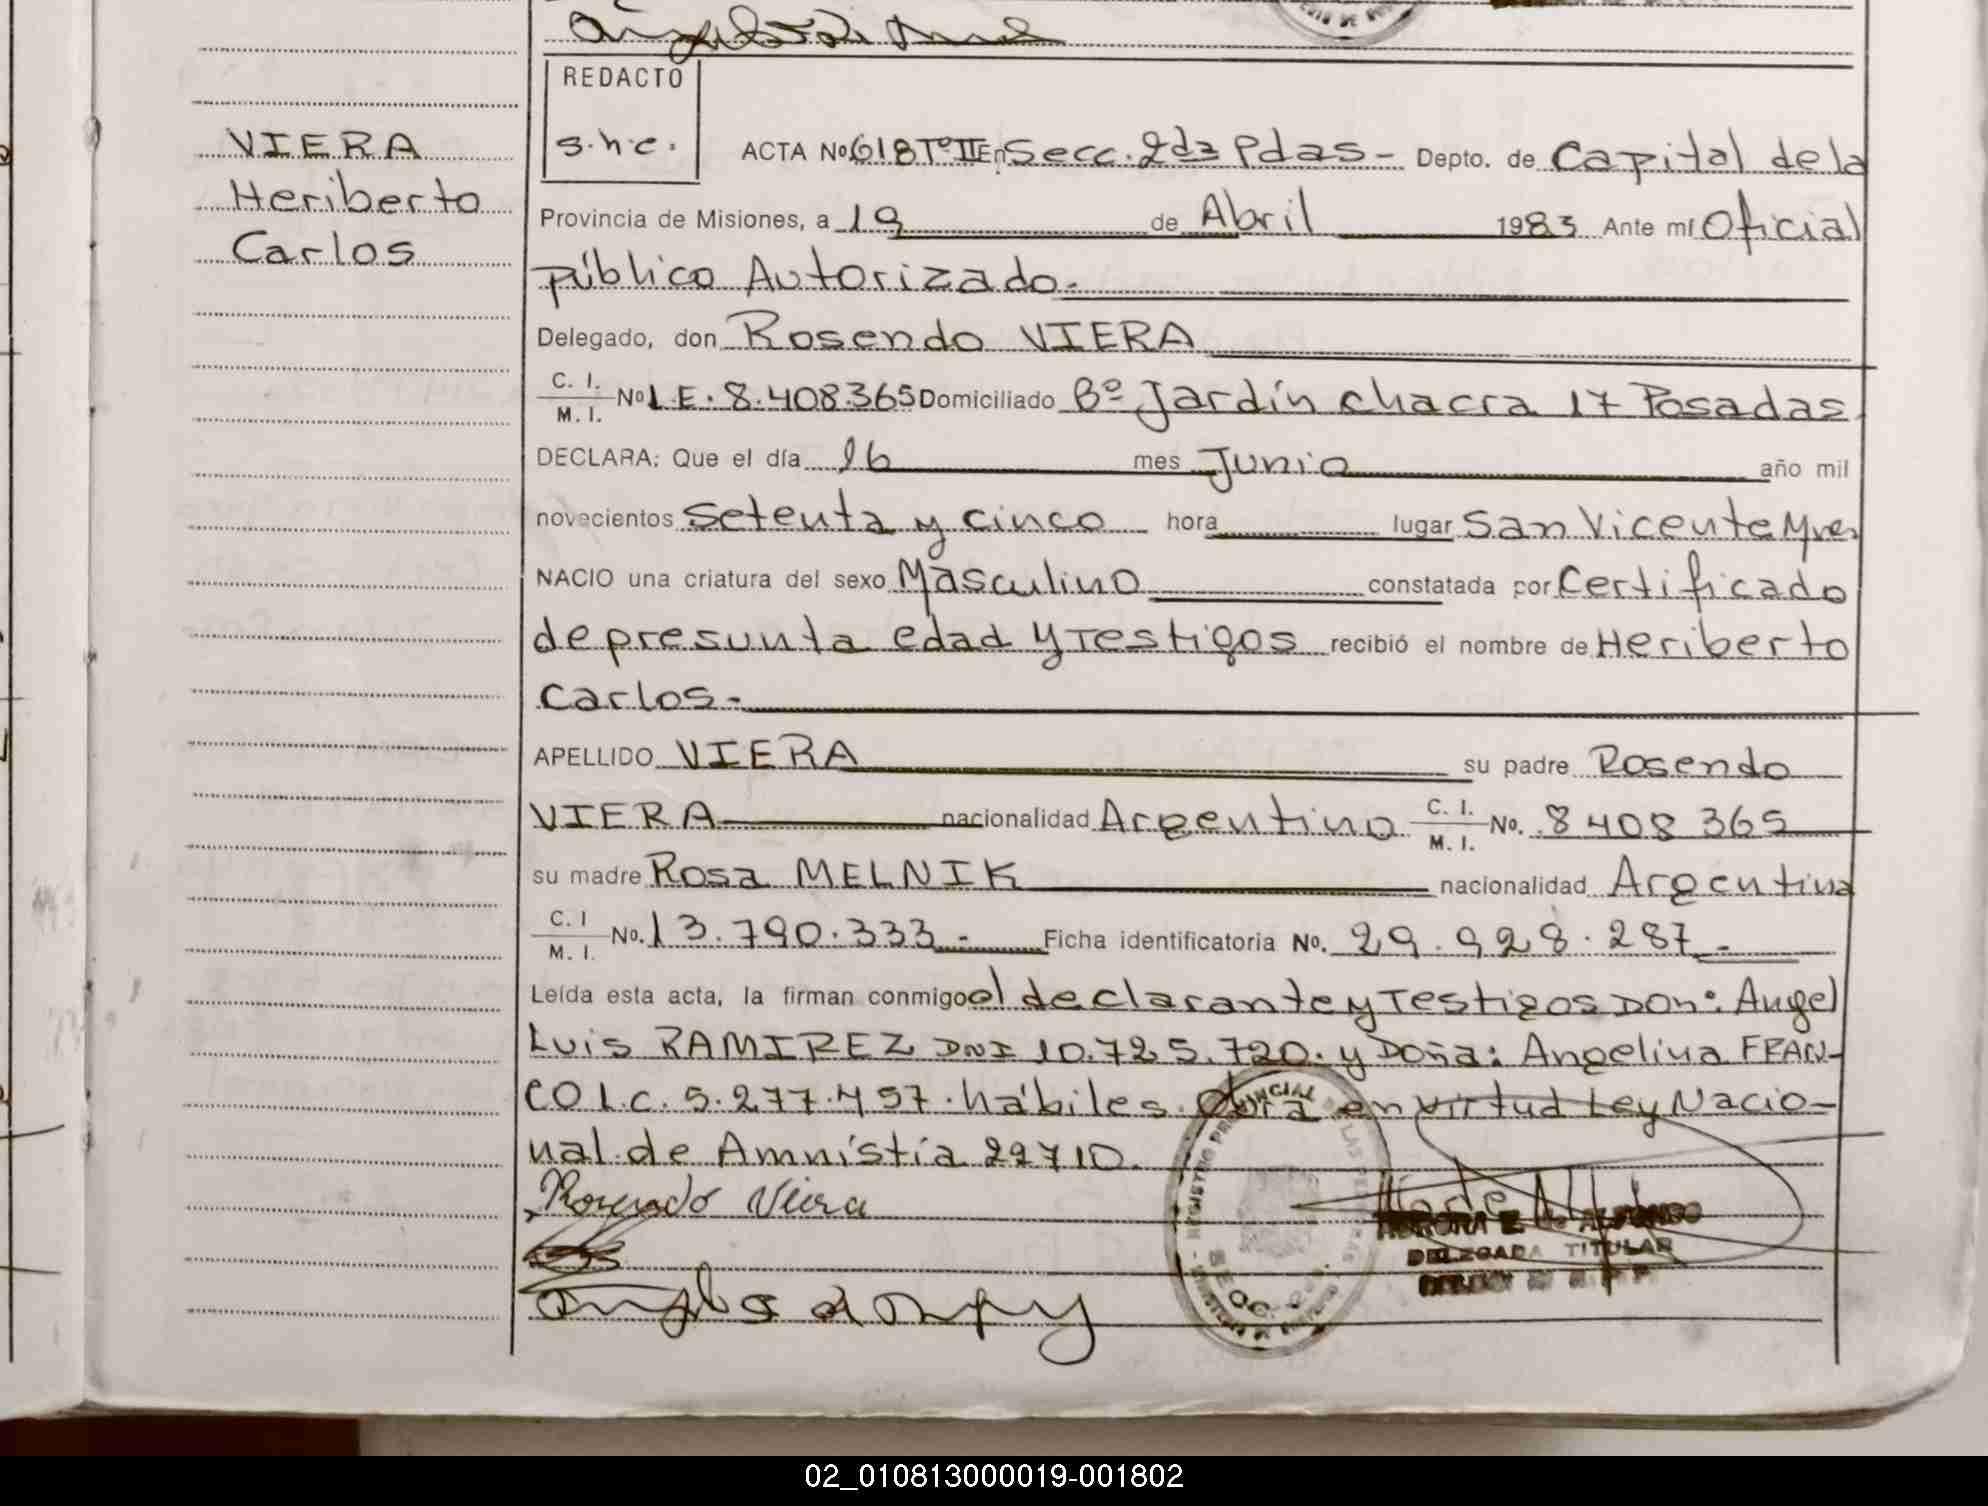 REDACTO
s.h.c.
VIERA
Heriberto
Carlos
ACTA No 618 Tº II En Secc. 2da Pdas - Depto. de Capital de la
Provincia de Misiones, a 19 de Abril 1983 Ante mí Oficial
público Autorizado.
Delegado, don Rosendo VIERA
C. I. M. I. No L.E. 8.408.365 Domiciliado Bº Jardín chacra 17 Posadas
DECLARA: Que el día 16 mes Junio año mil
novecientos setenta y cinco hora lugar San Vicente Mnes
NACIO una criatura del sexo Masculino constatada por Certificado
de presunta edad y Testigos recibió el nombre de Heriberto
Carlos.-
APELLIDO VIERA su padre Rosendo
VIERA nacionalidad Argentino C. I. M. I. No. 8408365
su madre Rosa MELNIK nacionalidad Argentina
C. I M. I. No. 13.790.333.- Ficha identificatoria No. 29.928.287.-
Leída esta acta, la firman conmigo el declarante y Testigos Don: Angel
Luis RAMIREZ DNI 10.725.720. y Doña: Angelina FRAN-
CO L.C. 5.277.457. hábiles. Obra en virtud Ley Nacio-
nal de Amnistía 22710.
Rosendo Viera
DELEGADA TITULAR
02_010813000019-001802